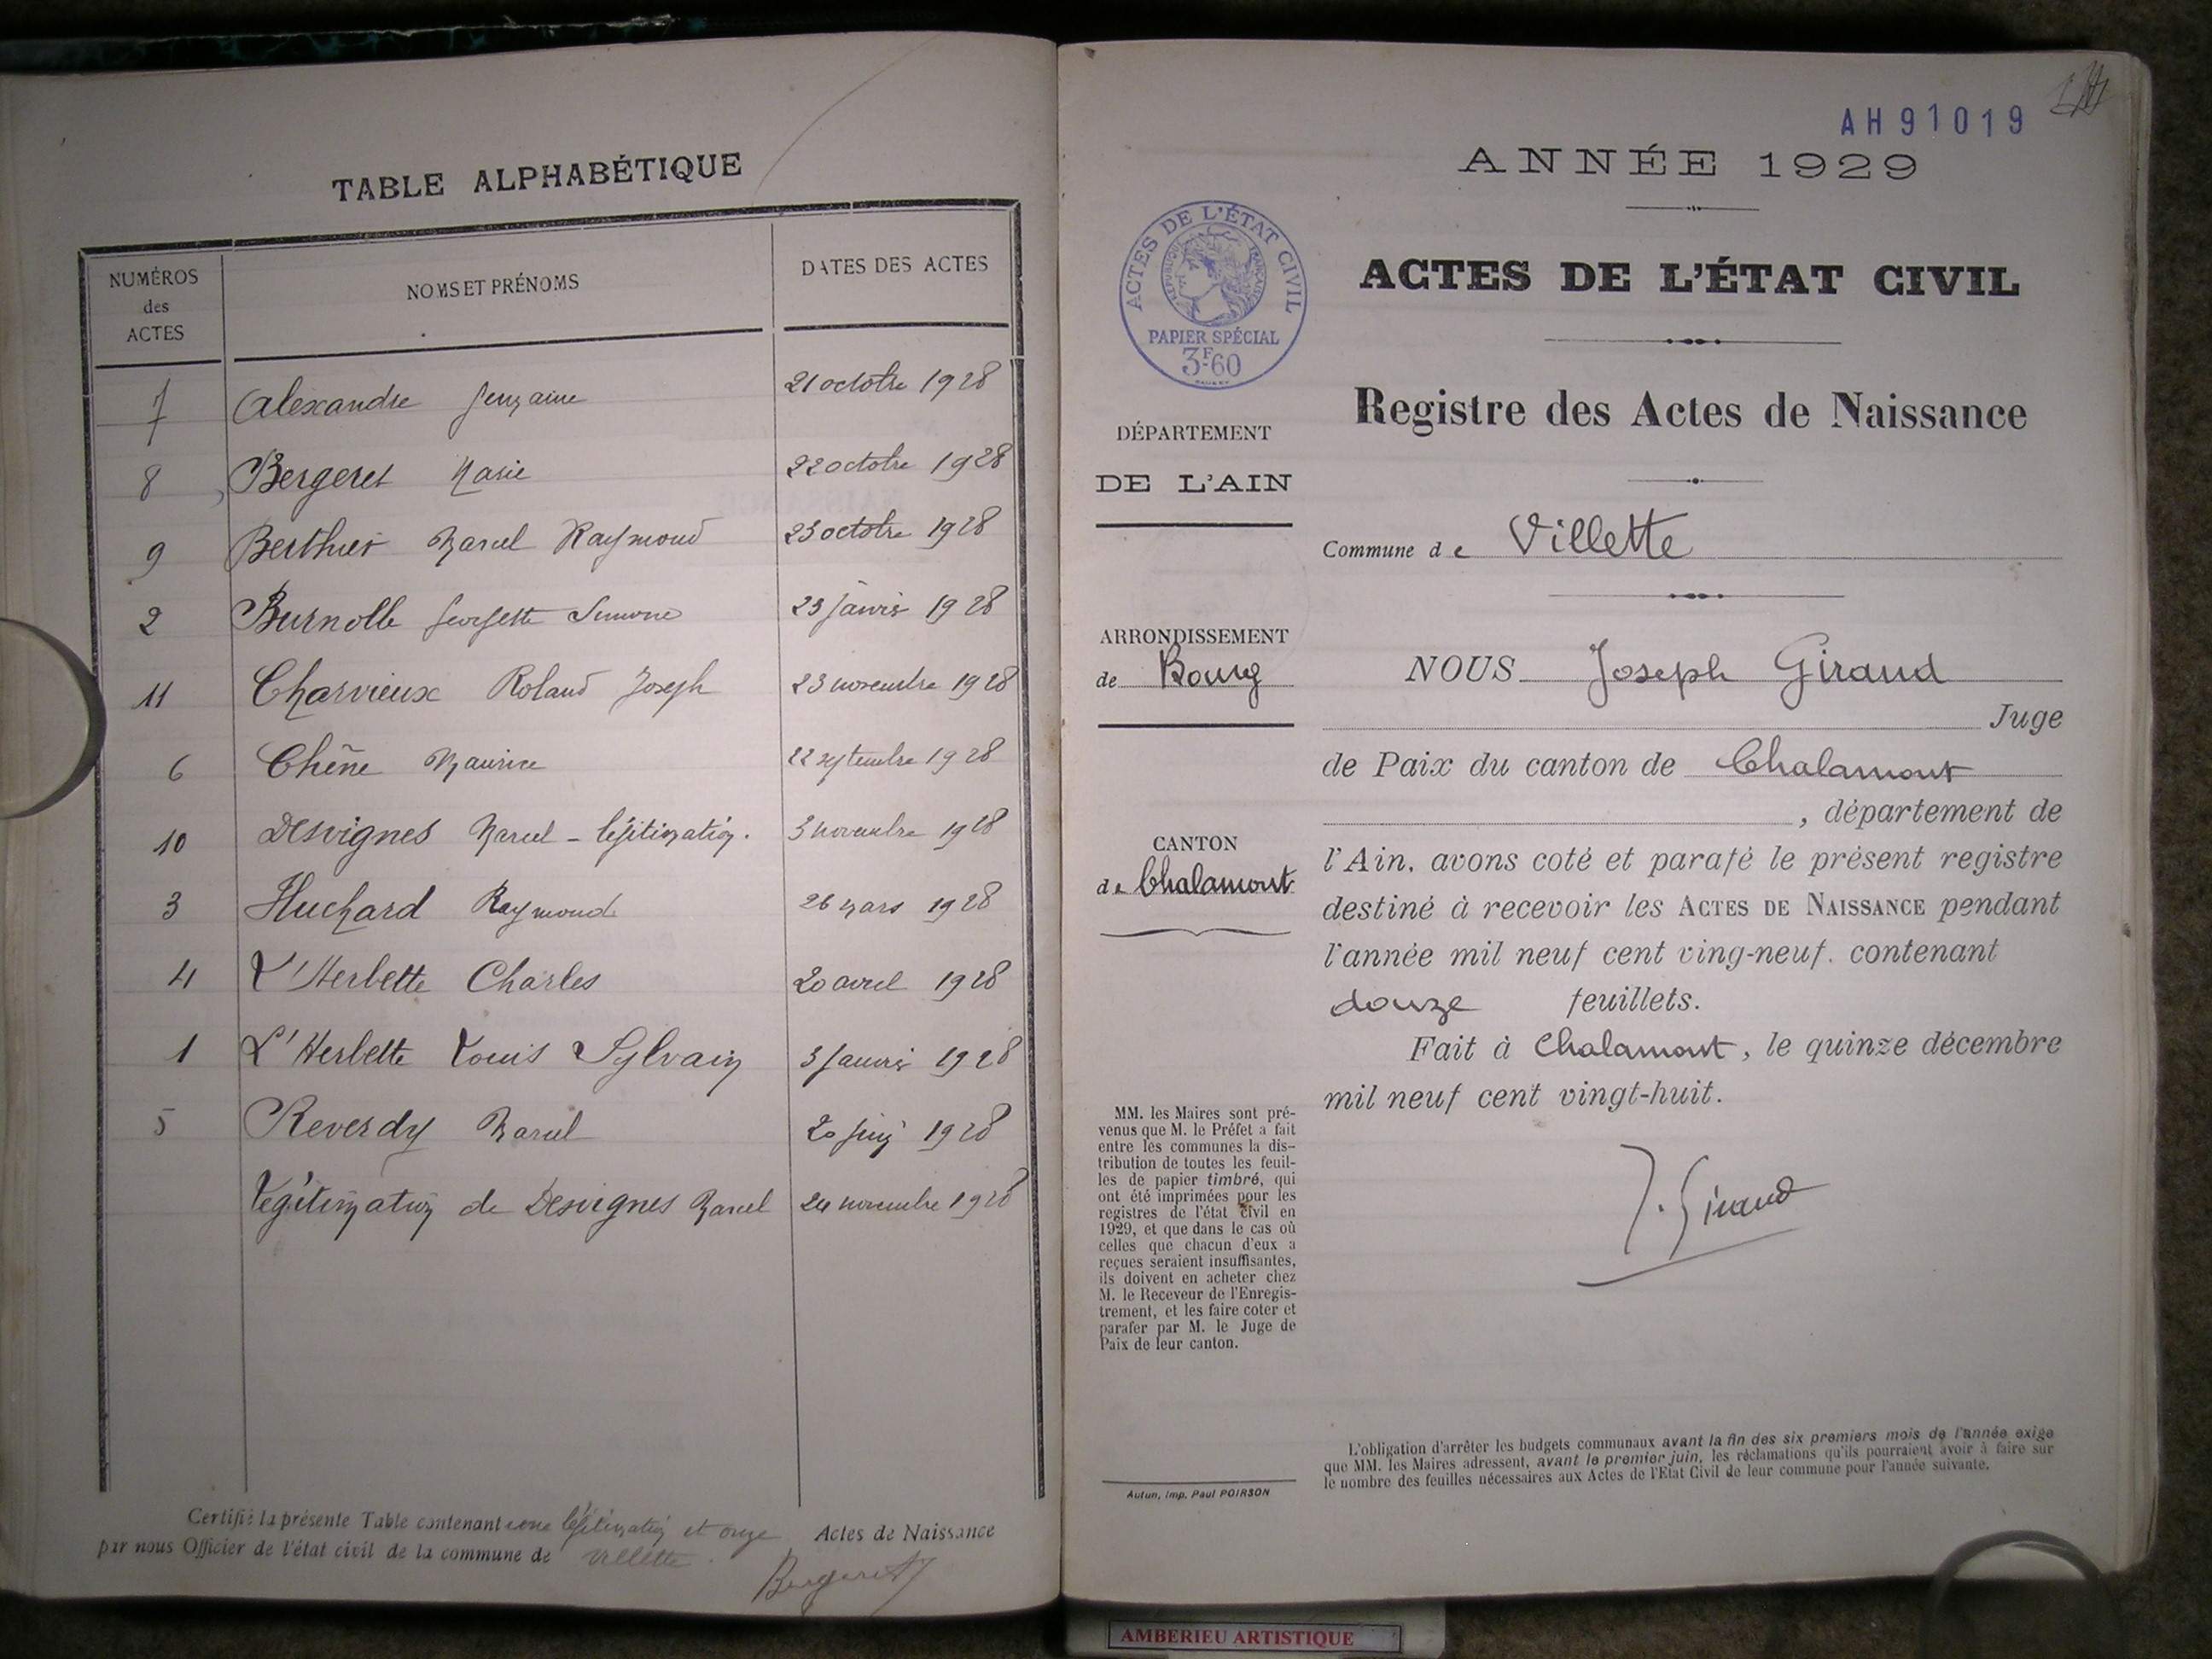 TABLE ALPHABÉTIQUE
NUMÉROS des ACTES NOMS ET PRÉNOMS DATES DES ACTES
7 Alexandre 21 octobre 1928
8 Bergeret Marie 22 octobre 1928
9 Berthier Marcel Raymond 23 octobre 1928
2 Burnolle Georgette Simone 23 janvier 1928
11 Charvieux Roland Joseph 23 novembre 1928
6 Chêne Maurice 22 septembre 1928
10 Desvignes Marcel - légitimation. 3 novembre 1928
3 Huchard Raymond 26 mars 1928
4 L'Herbette Charles 20 avril 1928
1 L'Herbette Louis Sylvain 3 janvier 1928
5 Reverdy Marcel 20 juin 1928
Légitimation de Desvignes Marcel 24 novembre 1928
Certifié la présente Table contenant une légitimation et onze Actes de Naissance
par nous Officier de l'état civil de la commune de Villette.
Bergeret
AH91019
ANNÉE 1929
ACTES DE L'ÉTAT CIVIL
RÉPUBLIQUE FRANÇAISE
PAPIER SPÉCIAL
3F-60
ACTES DE L'ÉTAT CIVIL
Registre des Actes de Naissance
DÉPARTEMENT
DE L'AIN
Commune de Villette
ARRONDISSEMENT
de Bourg
CANTON
de Chalamont
NOUS Joseph Giraud
Juge
de Paix du canton de Chalamont
, département de
l'Ain, avons coté et parafé le présent registre
destiné à recevoir les ACTES DE NAISSANCE pendant
l'année mil neuf cent ving-neuf. contenant
douze feuillets.
Fait à Chalamont, le quinze décembre
mil neuf cent vingt-huit.
J. Giraud
MM. les Maires sont pré-
venus que M. le Préfet a fait
entre les communes la dis-
tribution de toutes les feuil-
les de papier timbré, qui
ont été imprimées pour les
registres de l'état civil en
1929, et que dans le cas où
celles que chacun d'eux a
reçues seraient insuffisantes,
ils doivent en acheter chez
M. le Receveur de l'Enregis-
trement, et les faire coter et
parafer par M. le Juge de
Paix de leur canton.
Autun, Imp. Paul POIRSON
L'obligation d'arrêter les budgets communaux avant la fin des six premiers mois de l'année exige
que MM. les Maires adressent, avant le premier juin, les réclamations qu'ils pourraient avoir à faire sur
le nombre des feuilles nécessaires aux Actes de l'Etat Civil de leur commune pour l'année suivante.
AMBERIEU ARTISTIQUE